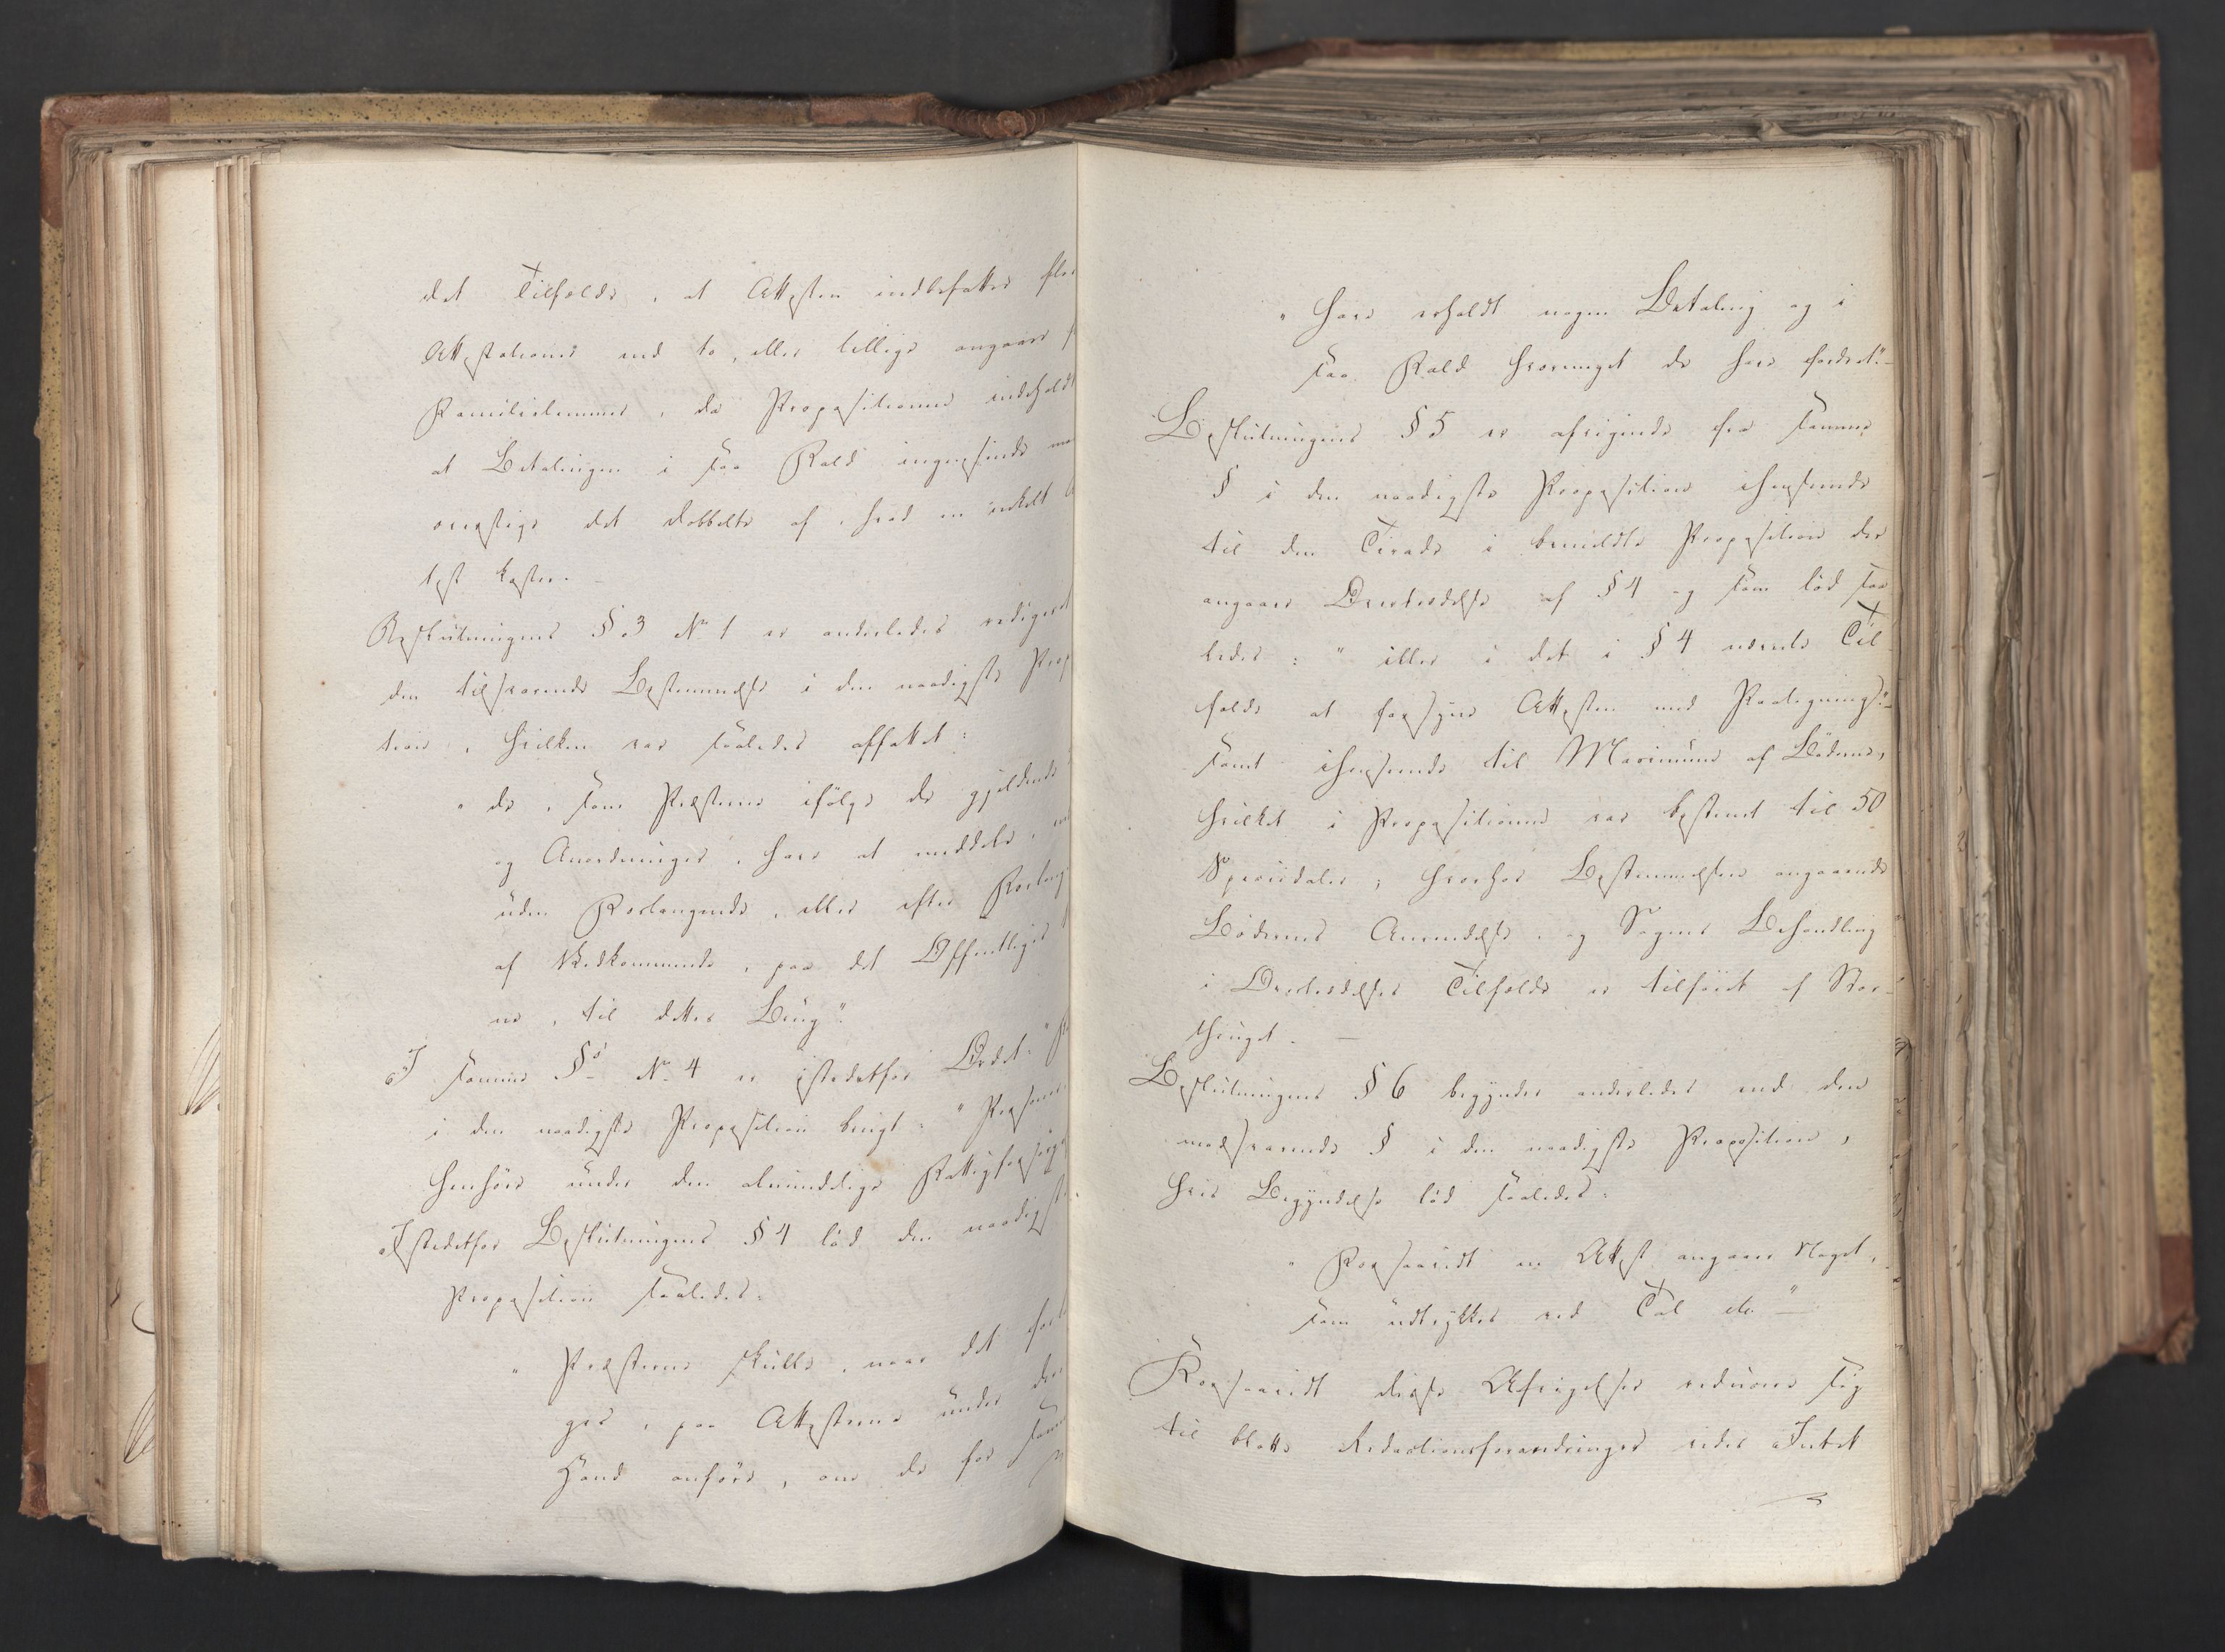 det Tilfælde, at Attesten indbefatter fle
Attestationer end to, eller tillige angaaer f
Familielemmer, da Propositionen indeholdt
at Betalingen i saa Fald ingensinde maa
overstige det Dobbelte af, hvad en enkelt
test koster. –
Beslutningens § 3 No 1 er anderledes redigeret
den tilsvarende Bestemmelse i den naadigste Prop
tion, hvilken var saaledes affattet:
" de, som Præsterne ifølge de gjeldende
og Anordninger, have at meddele,
uden Forlangende, eller efter Forlang
af Vedkommende, paa det Offentliges
ne, til dettes Brug".
I samme §s No 4 er istedetfor Ordet: "
i den naadigste Proposition brugt: " Personer
henhøre under den almindelige Fattigforsørg
Istedetfor Beslutningens § 4 lød den naadigste
Proposition saaledes:
" Præsterne skulle, naar det forl
ges, paa Attesterne under deres
Haand anføre, om de for samme
" have erholdt nogen Betaling og i
saa Fald hvormeget de have fordret". –
Beslutningens § 5 er afvigende fra samme
§ i den naadigste Proposition ihenseende
til den Tirade i bemeldte Proposition der
angaaer Overtrædelse af § 4 og som lød saa
ledes: " eller i det i § 4 nævnte Til
fælde at forsyne Attesten med Paategning" –
samt ihenseende til Maximum af Bøderne,
hvilket i Propositionen var bestemt til 50
Speciedaler; hvorhos Bestemmelsen angaaende
Bødernes Anvendelse og Sagens Behandling
i Overtrædelses Tilfælde er tilføiet af Stor-
thinget. –
Beslutningens § 6 begynder anderledes end den
modsvarende § i den naadigste Proposition,
hvis Begyndelse lød saaledes:
" Forsaavidt en Attest angaaer Noget,
som udtrykkes ved Tal etc" –
Forsaavidt disse Afvigelser reducere sig
til blotte Redactionsforandringer vides Intet